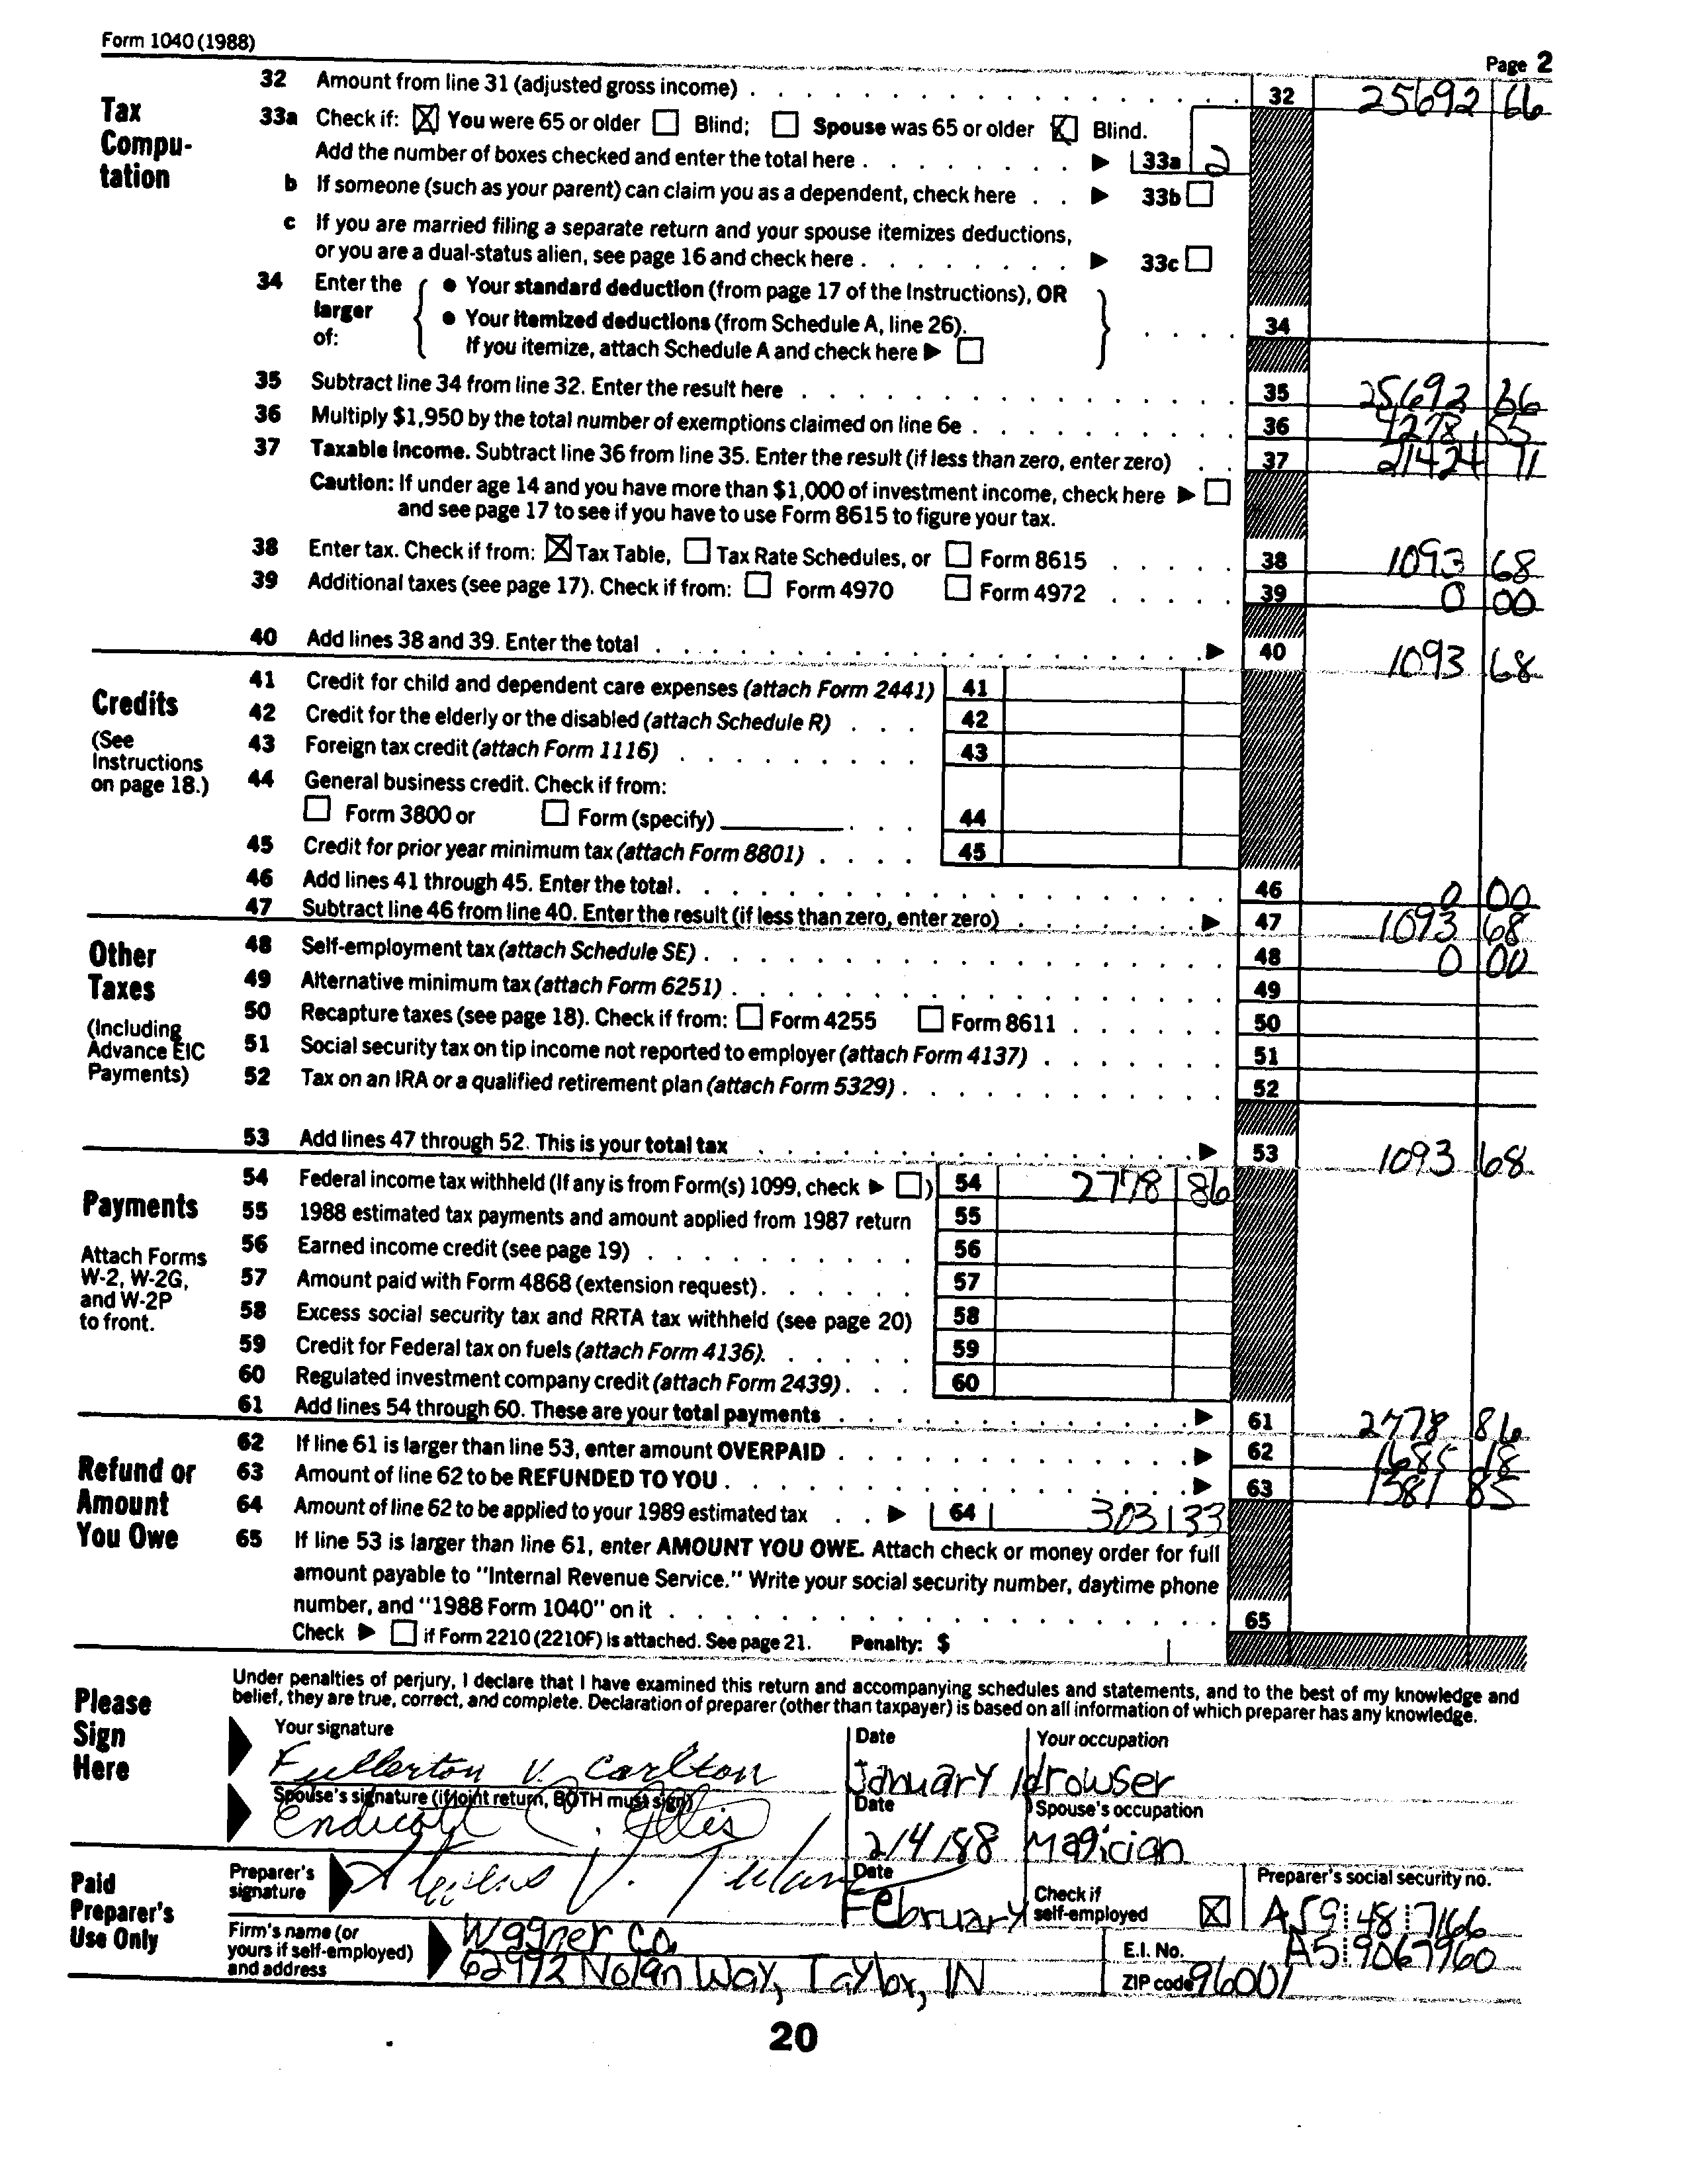 Form 1040 (1988)
Page 2
Tax Compu-tation
32 Amount from line 31 (adjusted gross income) 32 25692 66
33a Check if: You were 65 or older Blind; Spouse was 65 or older Blind.
Add the number of boxes checked and enter the total here 33a 2
b If someone (such as your parent) can claim you as a dependent, check here 33b
c If you are married filing a separate return and your spouse itemizes deductions,
or you are a dual-status alien, see page 16 and check here 33c
34 Enter the larger of:
• Your standard deduction (from page 17 of the Instructions), OR
• Your itemized deductions (from Schedule A, line 26).
If you itemize, attach Schedule A and check here
34
35 Subtract line 34 from line 32. Enter the result here 35 25692
36 Multiply $1,950 by the total number of exemptions claimed on line 6e 36 4278 55
37 Taxable Income. Subtract line 36 from line 35. Enter the result (if less than zero, enter zero) 37 21424 11
Caution: If under age 14 and you have more than $1,000 of investment income, check here
and see page 17 to see if you have to use Form 8615 to figure your tax.
38 Enter tax. Check if from: Tax Table, Tax Rate Schedules, or Form 8615 38 1093 68
39 Additional taxes (see page 17). Check if from: Form 4970 Form 4972 39 0 00
40 Add lines 38 and 39. Enter the total 40 1093 68
Credits
(See Instructions on page 18.)
41 Credit for child and dependent care expenses (attach Form 2441) 41
42 Credit for the elderly or the disabled (attach Schedule R) 42
43 Foreign tax credit (attach Form 1116) 43
44 General business credit. Check if from:
Form 3800 or Form (specify) 44
45 Credit for prior year minimum tax (attach Form 8801) 45
46 Add lines 41 through 45. Enter the total. 46 0 00
47 Subtract line 46 from line 40. Enter the result (if less than zero, enter zero) 47 1093 68
Other Taxes
(Including Advance EIC Payments)
48 Self-employment tax (attach Schedule SE) 48 0 00
49 Alternative minimum tax (attach Form 6251) 49
50 Recapture taxes (see page 18). Check if from: Form 4255 Form 8611 50
51 Social security tax on tip income not reported to employer (attach Form 4137) 51
52 Tax on an IRA or a qualified retirement plan (attach Form 5329) 52
53 Add lines 47 through 52. This is your total tax 53 1093 68
Payments
Attach Forms W-2, W-2G, and W-2P to front.
54 Federal income tax withheld (If any is from Form(s) 1099, check ) 54 2778 86
55 1988 estimated tax payments and amount applied from 1987 return 55
56 Earned income credit (see page 19) 56
57 Amount paid with Form 4868 (extension request) 57
58 Excess social security tax and RRTA tax withheld (see page 20) 58
59 Credit for Federal tax on fuels (attach Form 4136). 59
60 Regulated investment company credit (attach Form 2439) 60
61 Add lines 54 through 60. These are your total payments 61 2778 86
Refund or Amount You Owe
62 If line 61 is larger than line 53, enter amount OVERPAID 62 1685 18
63 Amount of line 62 to be REFUNDED TO YOU 63 1381 85
64 Amount of line 62 to be applied to your 1989 estimated tax 64 303 33
65 If line 53 is larger than line 61, enter AMOUNT YOU OWE. Attach check or money order for full
amount payable to "Internal Revenue Service." Write your social security number, daytime phone
number, and "1988 Form 1040" on it 65
Check if Form 2210 (2210F) is attached. See page 21. Penalty: $
Please Sign Here
Under penalties of perjury, I declare that I have examined this return and accompanying schedules and statements, and to the best of my knowledge and
belief, they are true, correct, and complete. Declaration of preparer (other than taxpayer) is based on all information of which preparer has any knowledge.
Your signature Date Your occupation
Fullerton V. Carlton January drowser
Spouse's signature (if joint return, BOTH must sign) Date Spouse's occupation
Endicott C. Ellis 2/4/88 Magician
Paid Preparer's Use Only
Preparer's signature V. Date February Check if self-employed Preparer's social security no. A59 48 7166
Firm's name (or yours if self-employed) and address
Wagner Co. E.I. No. A5 9067960
62972 Nolan Way, Taylor, IN ZIP code 96001
20